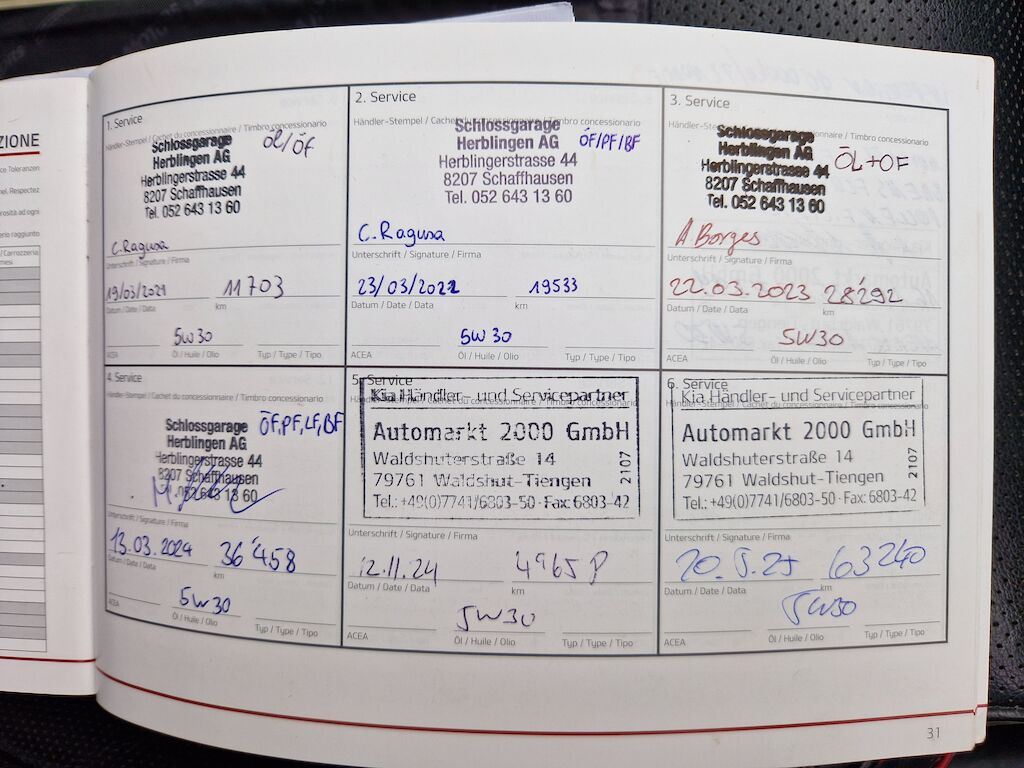 ZIONE
ce Toleranzen
nd. Respectez
erosità ad ogni
erio raggiunto
/ Carrozzeria
mesi
1. Service
Händler-Stempel / Cachet du concessionnaire / Timbro concessionario
Schlossgarage
Herblingen AG
Herblingerstrasse 44
8207 Schaffhausen
Tel. 052 643 13 60
ÖL/ÖF
C. Ragusa
Unterschrift / Signature / Firma
19/03/2021 11703
Datum / Date / Data km
5W30
ACEA Öl / Huile / Olio Typ / Type / Tipo
2. Service
Händler-Stempel / Cachet du concessionnaire / Timbro concessionario
Schlossgarage
Herblingen AG
Herblingerstrasse 44
8207 Schaffhausen
Tel. 052 643 13 60
ÖF/PF/BF
C. Ragusa
Unterschrift / Signature / Firma
23/03/2022 19533
Datum / Date / Data km
5W30
ACEA Öl / Huile / Olio Typ / Type / Tipo
3. Service
Händler-Stempel / Cachet du concessionnaire / Timbro concessionario
Schlossgarage
Herblingen AG
Herblingerstrasse 44
8207 Schaffhausen
Tel. 052 643 13 60
ÖL+ÖF
A. Borges
Unterschrift / Signature / Firma
22.03.2023 28'292
Datum / Date / Data km
5W30
ACEA Öl / Huile / Olio Typ / Type / Tipo
4. Service
Händler-Stempel / Cachet du concessionnaire / Timbro concessionario
Schlossgarage
Herblingen AG
Herblingerstrasse 44
8207 Schaffhausen
Tel. 052 643 13 60
ÖF,PF,LF,BF
Unterschrift / Signature / Firma
13.03.2024 36'458
Datum / Date / Data km
5W30
ACEA Öl / Huile / Olio Typ / Type / Tipo
5. Service
Händler-Stempel / Cachet du concessionnaire / Timbro concessionario
Kia Händler- und Servicepartner
Automarkt 2000 GmbH
Waldshuterstraße 14
79761 Waldshut-Tiengen
Tel.: +49(0)7741/6803-50 · Fax: 6803-42
2107
Unterschrift / Signature / Firma
12.11.24
Datum / Date / Data km
5W30
ACEA Öl / Huile / Olio Typ / Type / Tipo
6. Service
Händler-Stempel / Cachet du concessionnaire / Timbro concessionario
Kia Händler- und Servicepartner
Automarkt 2000 GmbH
Waldshuterstraße 14
79761 Waldshut-Tiengen
Tel.: +49(0)7741/6803-50 · Fax: 6803-42
2107
Unterschrift / Signature / Firma
20.5.25 63240
Datum / Date / Data km
5W30
ACEA Öl / Huile / Olio Typ / Type / Tipo
31